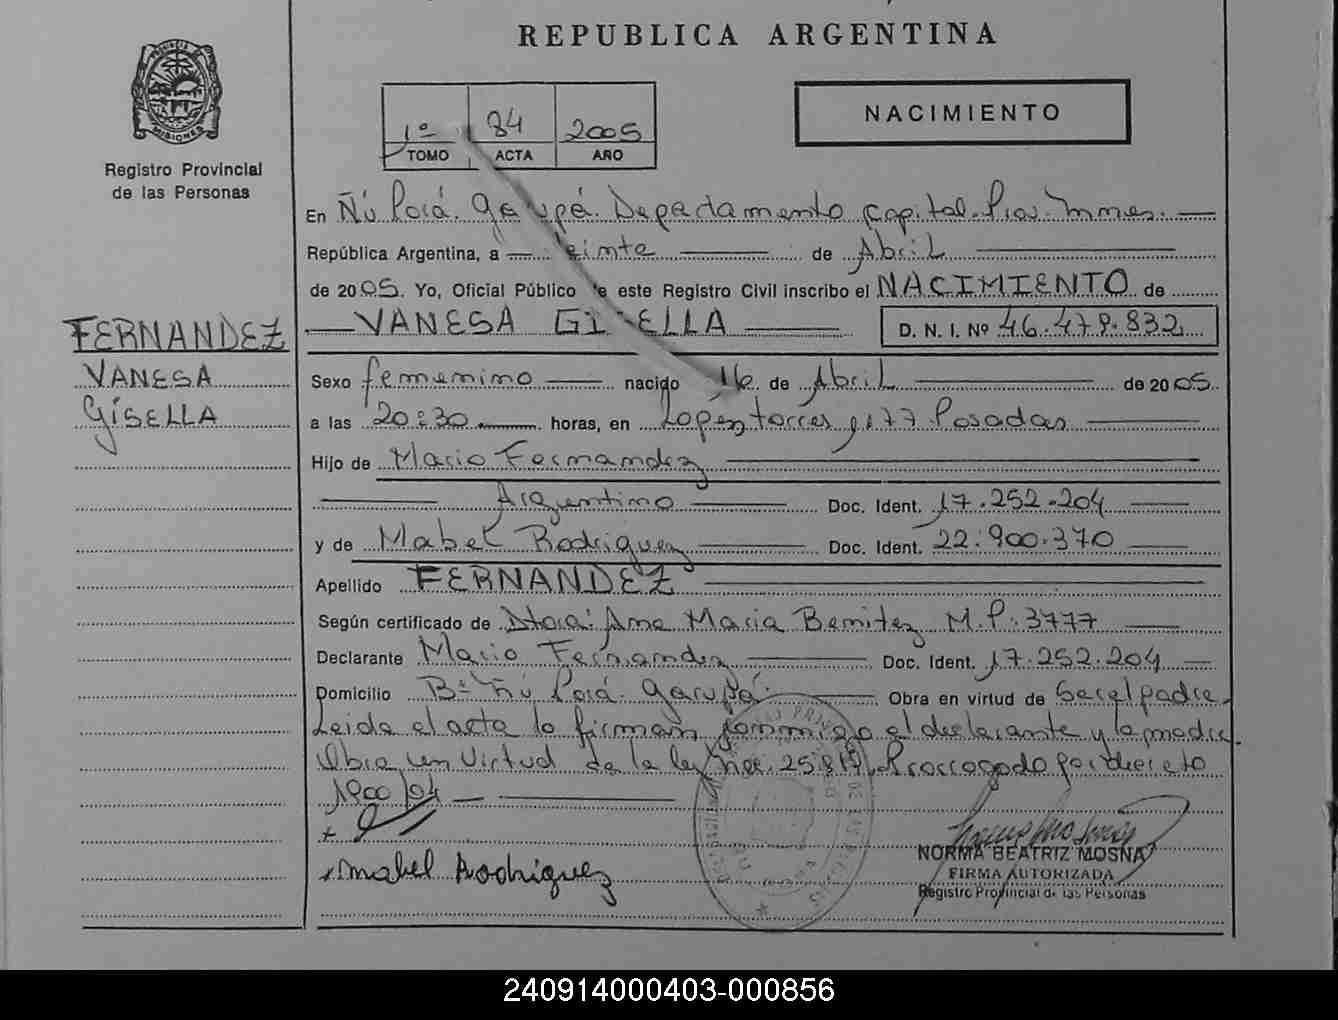 REPUBLICA ARGENTINA
PROVINCIA DE
MISIONES
Registro Provincial
de las Personas
1º 84 2005
TOMO ACTA AÑO
NACIMIENTO
En Ñú Porá. Garupá. Departamento Capital. Prov. Mnes.
República Argentina, a Veinte de Abril
de 2005. Yo, Oficial Público de este Registro Civil inscribo el NACIMIENTO de
VANESA GISELLA D. N. I. Nº 46.479.832
FERNANDEZ
VANESA
GISELLA
Sexo femenino nacido 16 de Abril de 2005
a las 20:30 horas, en Lopez torres 1177 Posadas
Hijo de Mario Fernandez
Argentino Doc. Ident. 17.252.204
y de Mabel Rodriguez Doc. Ident. 22.900.370
Apellido FERNANDEZ
Según certificado de Dtora: Ana Maria Benitez M.P. 3777
Declarante Mario Fernandez Doc. Ident. 17.252.204
Domicilio Bº Ñú Porá. Garupá Obra en virtud de Ser el padre.
Leida el acta la firman conmigo el declarante y la madre.
Obra en Virtud de la ley Nro. 25.819 Prorrogado por decreto
1900/04
x Mabel Rodriguez
NORMA BEATRIZ MOSNA
FIRMA AUTORIZADA
Registro Provincial de las Personas
240914000403-000856